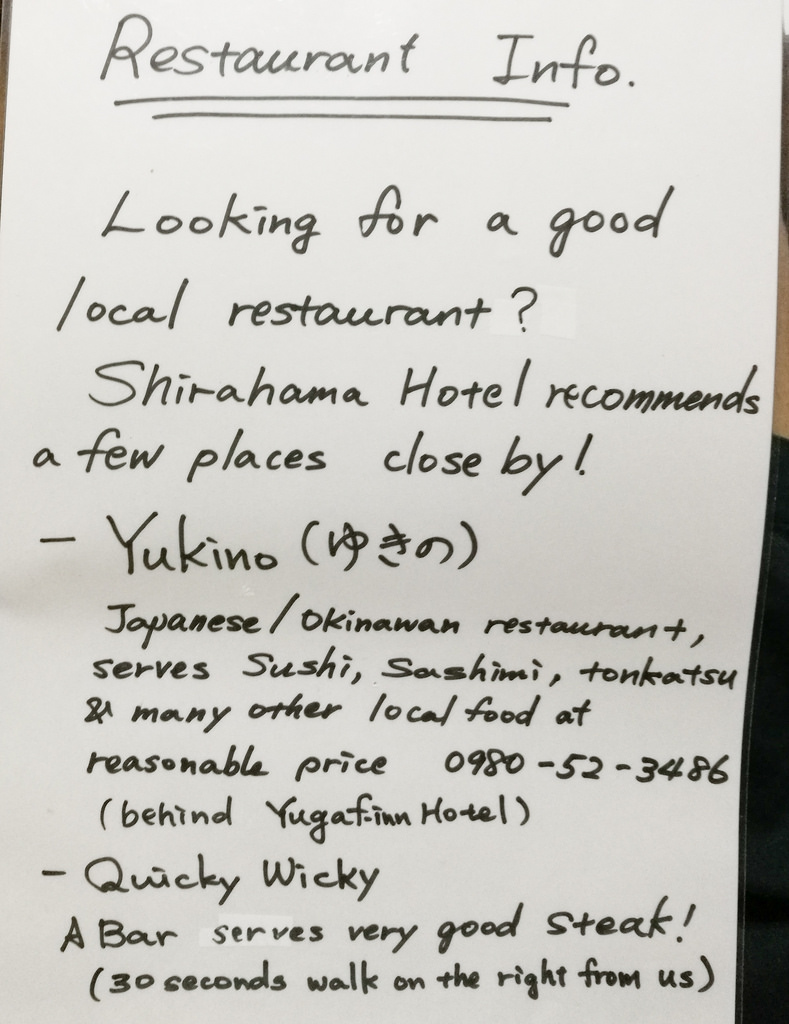 Restaurant Info.
Looking for a good
local restaurant?
Shirahama Hotel recommends
a few places close by!
- Yukino (ゆきの)
Japanese/Okinawan restaurant,
serves Sushi, Sashimi, tonkatsu
& many other local food at
reasonable price 0980-52-3486
(behind Yugaf-inn Hotel)
- Quicky Wicky
A Bar serves very good steak!
(30 seconds walk on the right from us)